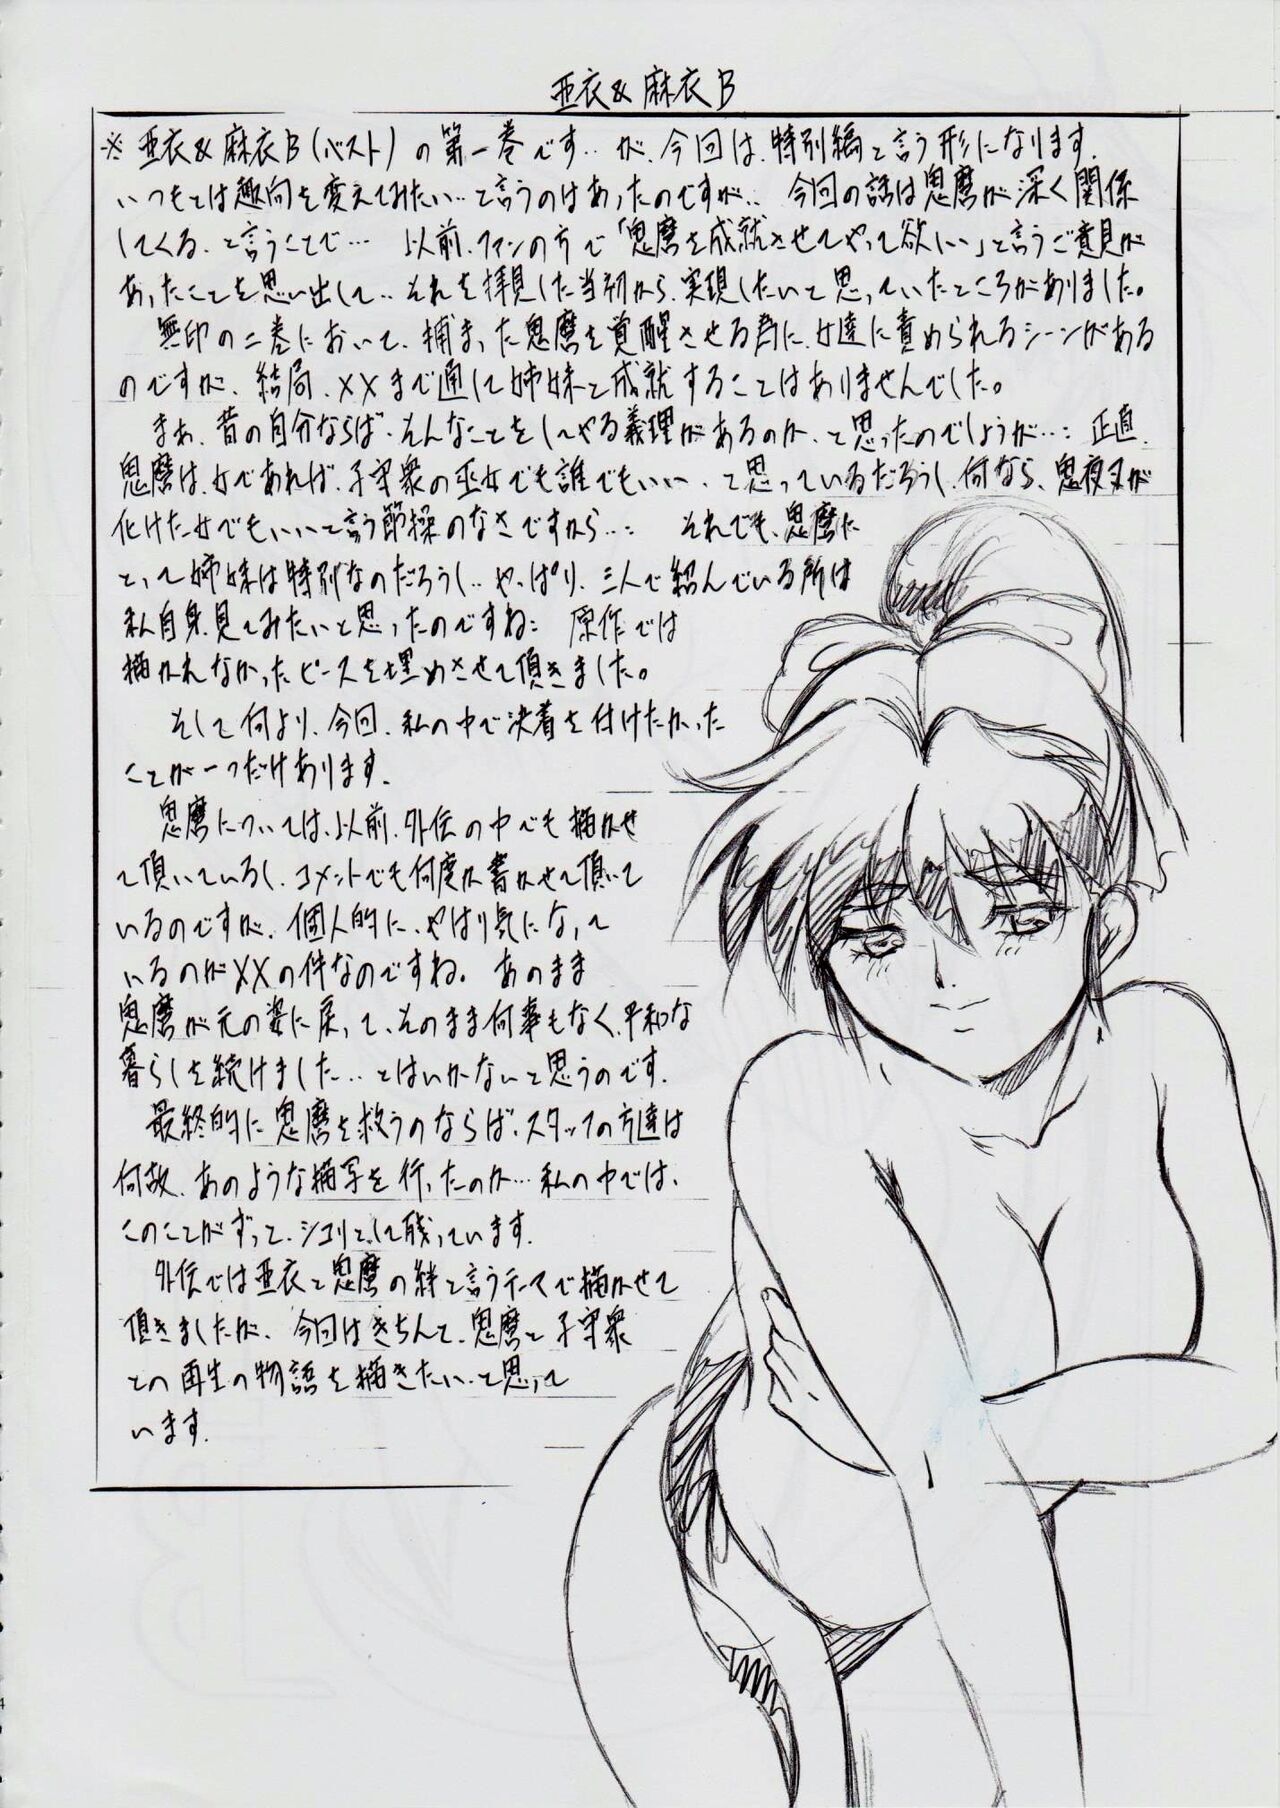 亜衣&麻衣B
※ 亜衣&麻衣B(ベスト)の第一巻です‥が、今回は、特別編と言う形になります。
いつもとは趣向を変えてみたい‥と言うのはあったのですが‥ 今回の話は鬼麿が深く関係
してくる、と言うことで… 以前、ファンの方で「鬼麿を成就させてやって欲しい」と言うご意見が
あったことを思い出して‥それを拝見した当初から、実現したいと思っていたところがありました。
無印の二巻において、捕まった鬼麿を覚醒させる為に、女達に責められるシーンがある
のですが、結局、XXまで通して姉妹と成就することはありませんでした。
まぁ、昔の自分ならば、そんなことをしてやる義理があるのか、と思ったのでしょうが…: 正直、
鬼麿は、女であれば、子守衆の巫女でも誰でもいい、と思っているだろうし、何なら、鬼夜叉が
化けた女でもいいと言う節操のなさですから…: それでも、鬼麿に
とって姉妹は特別なのだろうし‥やっぱり、三人で絡んでいる所は
私自身、見てみたいと思ったのですね: 原作では
描かれなかったピースを埋めさせて頂きました。
そして何より、今回、私の中で決着を付けたかった
ことが一つだけあります。
鬼麿については、以前、外伝の中でも描かせ
て頂いているし、コメントでも何度か書かせて頂いて
いるのですが、個人的に、やはり気になって
いるのがXXの件なのですね。あのまま
鬼麿が元の姿に戻って、そのまま何事もなく、平和な
暮らしを続けました‥とはいかないと思うのです。
最終的に鬼麿を救うのならば、スタッフの方達は
何故、あのような描写を行ったのか…私の中では、
このことがずっと、シコリとして残っています。
外伝では亜衣と鬼麿の絆と言うテーマで描かせて
頂きましたが、今回はきちんと、鬼麿と子守衆
との再生の物語を描きたい‥と思って
います。